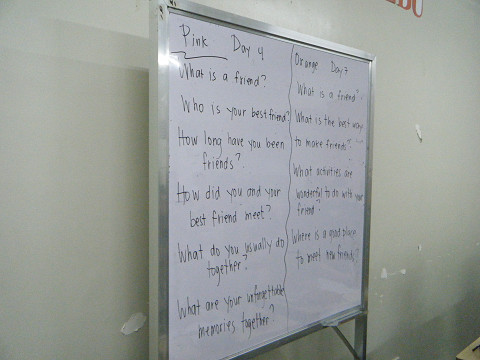 Pink Day 4
What is a friend?
Who is your best friend?
How long have you been
friends?
How did you and your
best friend meet?
What do you usually do
together?
What are your unforgettable
memories together?
Orange Day 7
What is a friend?
What is the best way
to make friends?
What activities are
wonderful to do with your
friend?
Where is a good place
to meet new friends?